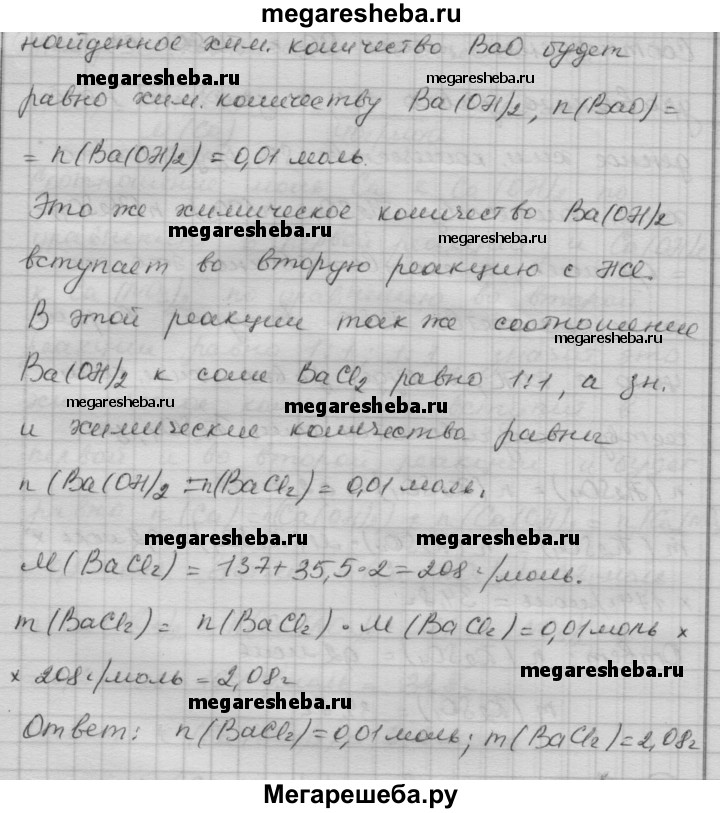 megaresheba.ru
найденное хим. количество BaO будет
megaresheba.ru megaresheba.ru
равно хим. количеству Ba(OH)2, n(BaO)=
= n(Ba(OH)2) = 0,01 моль.
Это же химическое количество Ba(OH)2
megaresheba.ru megaresheba.ru
вступает во вторую реакцию с HCl.
В этой реакции так же соотношение
megaresheba.ru
Ba(OH)2 к соли BaCl2 равно 1:1, а зн.
megaresheba.ru megaresheba.ru
и химические количества равны
n (Ba(OH)2 = n(BaCl2) = 0,01 моль.
megaresheba.ru megaresheba.ru
M(BaCl2) = 137+35,5·2=208 г/моль.
m(BaCl2) = n(BaCl2) · M(BaCl2)=0,01моль ×
megaresheba.ru
× 208 г/моль = 2,08г
megaresheba.ru
Ответ: n(BaCl2)=0,01 моль; m(BaCl2)=2,08г
megaresheba.ru
Мегарешеба.ру